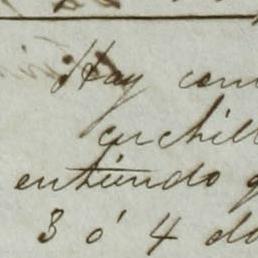 Hay com
cuchill
entiendo q
3 ó 4 da